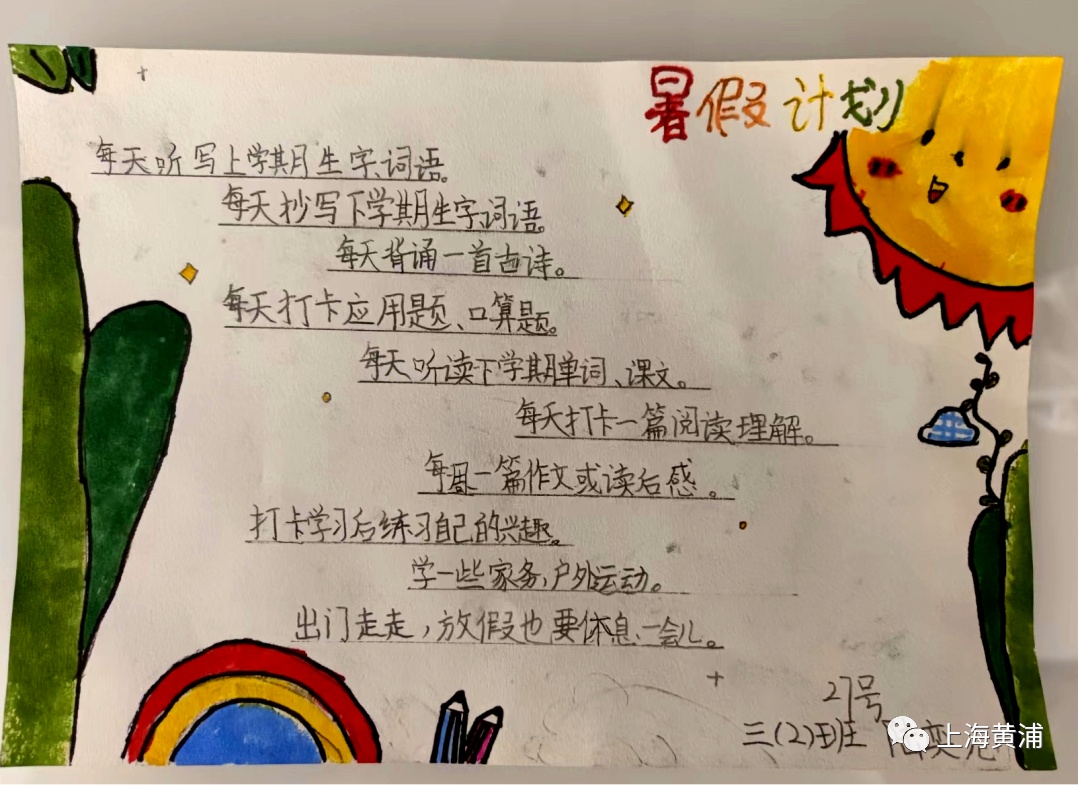 暑假计划
每天听写上学期生字、词语。
每天抄写下学期生字、词语。
每天背诵一首古诗。
每天打卡应用题、口算题。
每天听读下学期单词、课文。
每天打卡一篇阅读理解。
每周一篇作文或读后感。
打卡学习后练习自己的兴趣。
学一些家务,户外运动。
出门走走,放假也要休息一会儿。
27号
三(2)班
上海黄浦